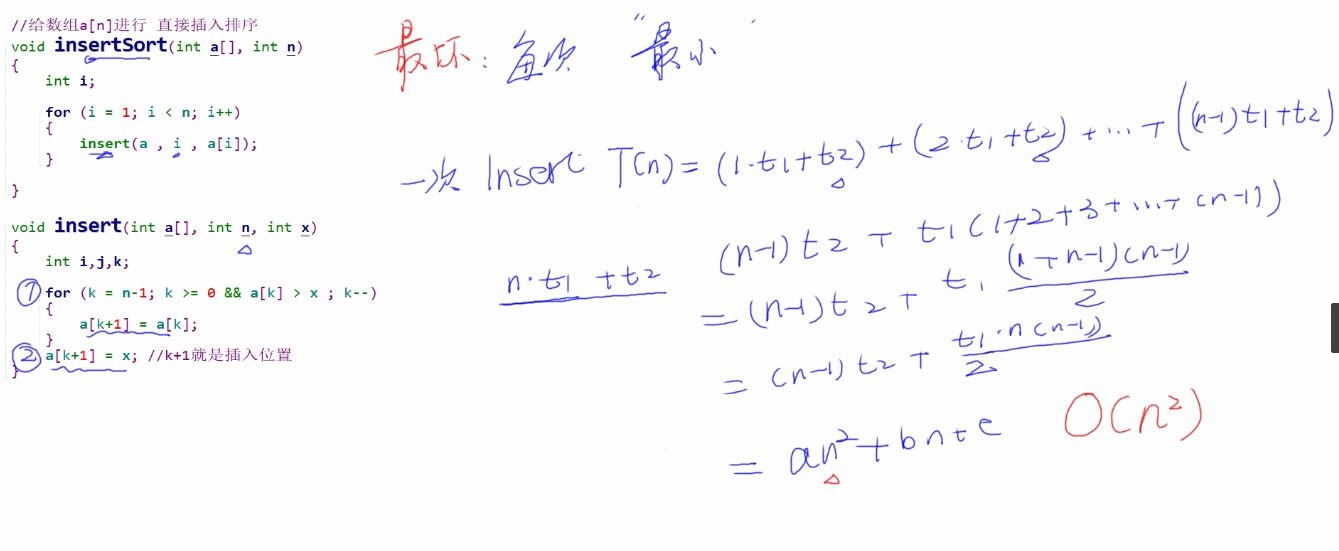 //给数组a[n]进行 直接插入排序
void insertSort(int a[], int n)
{
int i;
for (i = 1; i < n; i++)
{
insert(a , i , a[i]);
}
}
void insert(int a[], int n, int x)
{
int i,j,k;
① for (k = n-1; k >= 0 && a[k] > x ; k--)
{
a[k+1] = a[k];
}
② a[k+1] = x; //k+1就是插入位置
}
最坏: 每次 "最小"
一次 Insert T(n) = (1·t1+t2) + (2·t1+t2) + ... + ((n-1)t1+t2)
n·t1 + t2
(n-1)t2 + t1(1+2+3+...+(n-1))
= (n-1)t2 + t1 (1+n-1)(n-1)/2
= (n-1)t2 + t1·n(n-1)/2
= an²+bn+c O(n²)